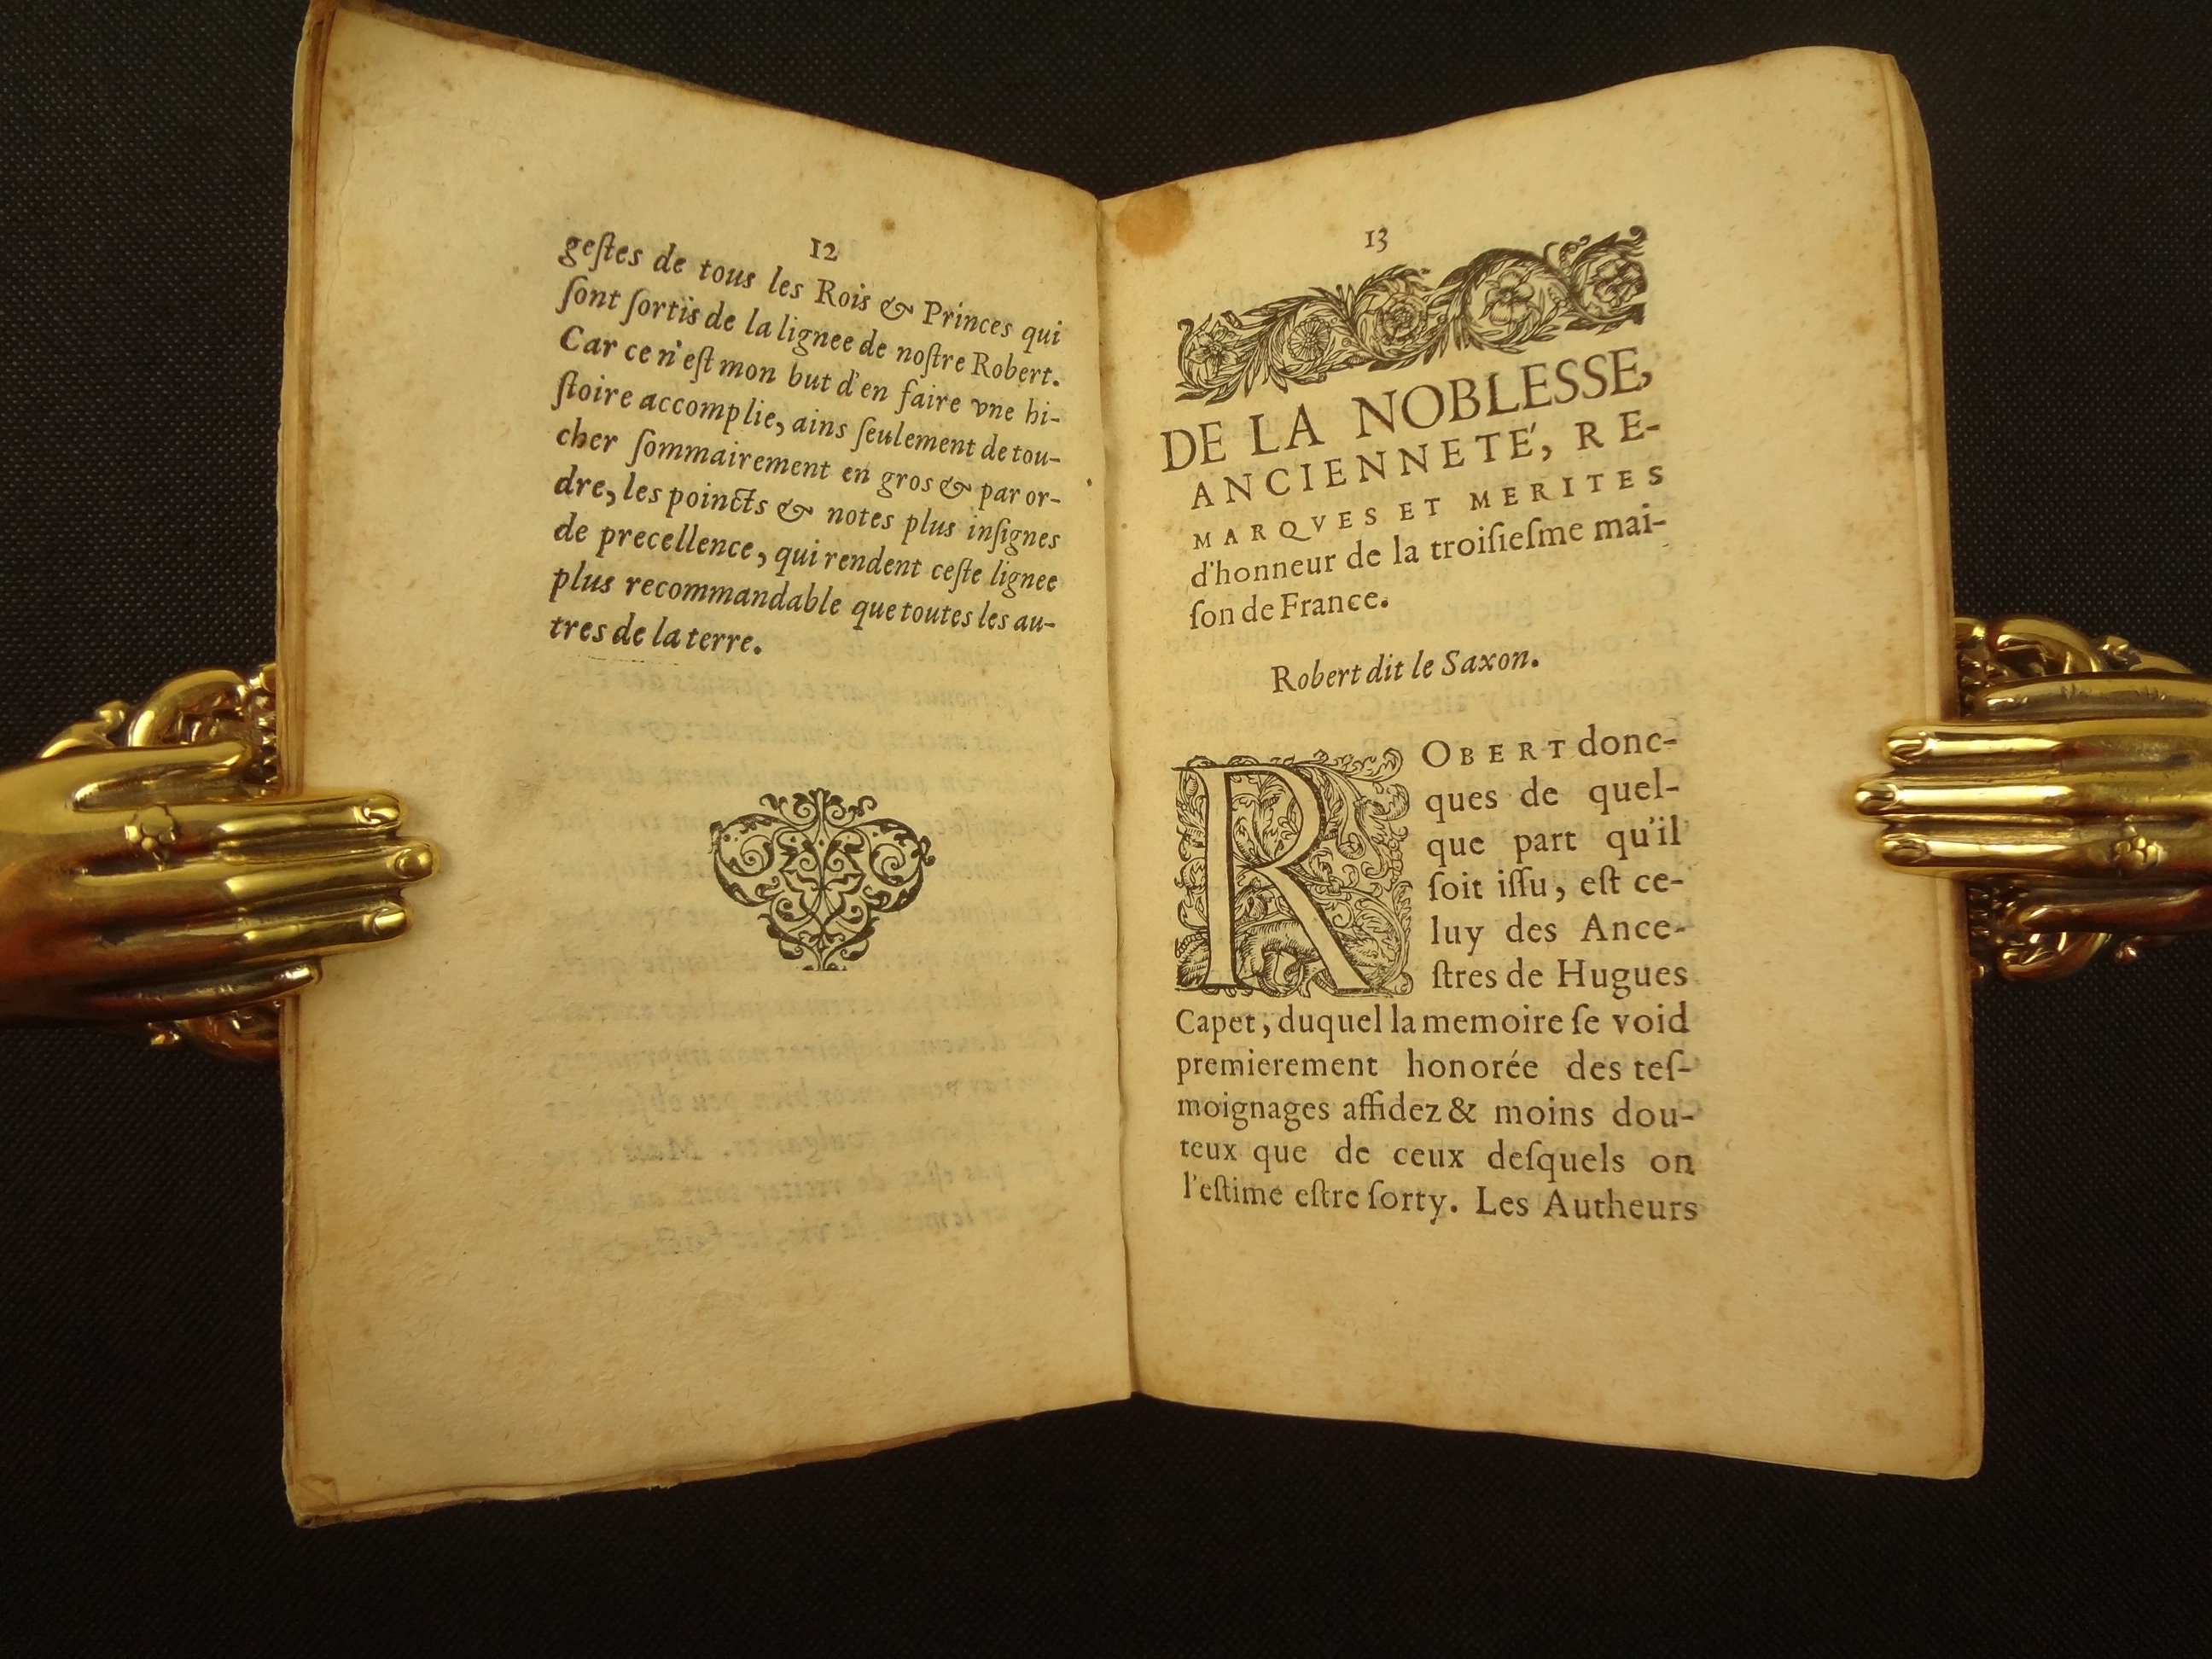 12
geſtes de tous les Rois & Princes qui
ſont ſortis de la lignee de noſtre Robert.
Car ce n'eſt mon but d'en faire vne hi-
ſtoire accomplie, ains ſeulement de tou-
cher ſommairement en gros & par or-
dre, les poincts & notes plus inſignes
de precellence, qui rendent ceſte lignee
plus recommandable que toutes les au-
tres de la terre.
13
DE LA NOBLESSE,
ANCIENNETE', RE-
MARQVES ET MERITES
d'honneur de la troiſieſme mai-
ſon de France.
Robert dit le Saxon.
ROBERT donc-
ques de quel-
que part qu'il
ſoit iſſu, eſt ce-
luy des Ance-
ſtres de Hugues
Capet, duquel la memoire ſe void
premierement honorée des teſ-
moignages affidez & moins dou-
teux que de ceux deſquels on
l'eſtime eſtre ſorty. Les Autheurs